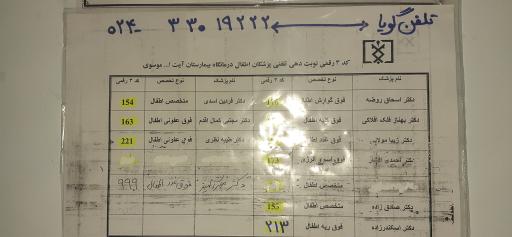 تلفن گویا ۳۳۰۱۹۲۲۲ - ۰۲۴
کد ۳ رقمی نوبت دهی تلفنی پزشکان اطفال درمانگاه بیمارستان آیت ا... موسوی
نام پزشک نوع تخصص کد ۳ رقمی نام پزشک نوع تخصص کد ۳ رقمی
دکتر اسحاق روضه فوق گوارش اطفال دکتر فردین اسدی متخصص اطفال 154
دکتر بهناز فلک افلاکی فوق کلیه اطفال دکتر مجتبی کمال اقدم فوق عفونی اطفال 163
دکتر زیبا فوق غدد اطفال دکتر طیبه نظری فوق عفونی اطفال 221
دکتر احمدی افشار فوق آسم و آلرژی 173
متخصص اطفال دکتر فوق غدد اطفال 999
دکتر صادق زاده متخصص اطفال 155
دکتر اسکندرزاده فوق ریه اطفال ۲۱۳